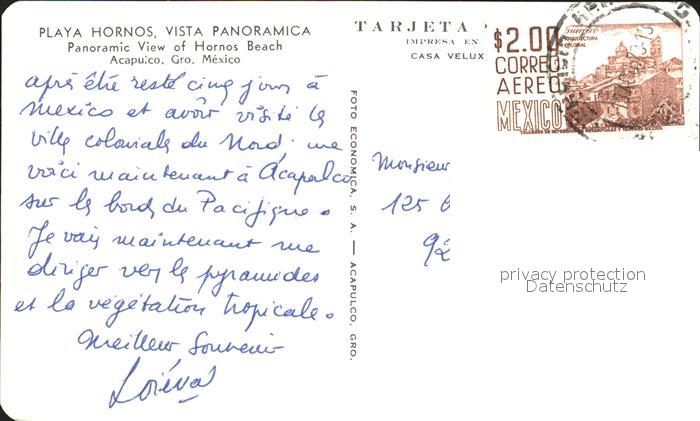 PLAYA HORNOS, VISTA PANORAMICA
Panoramic View of Hornos Beach
Acapulco, Gro. México
après être resté cinq jours à
Mexico et avoir visité les
villes coloniales du Nord. me
voici maintenant à Acapulco
sur les bords du Pacifique.
Je vais maintenant me
diriger vers les pyramides
et la végétation tropicale.
Meilleur Souvenir
FOTO ECONOMICA, S. A. — ACAPULCO, GRO.
TARJETA
IMPRESA EN
CASA VELUX
$2.00
CORREO
AEREO
MEXICO
ARQUITECTURA
COLONIAL
Monsieur
125
92
privacy protection
Datenschutz